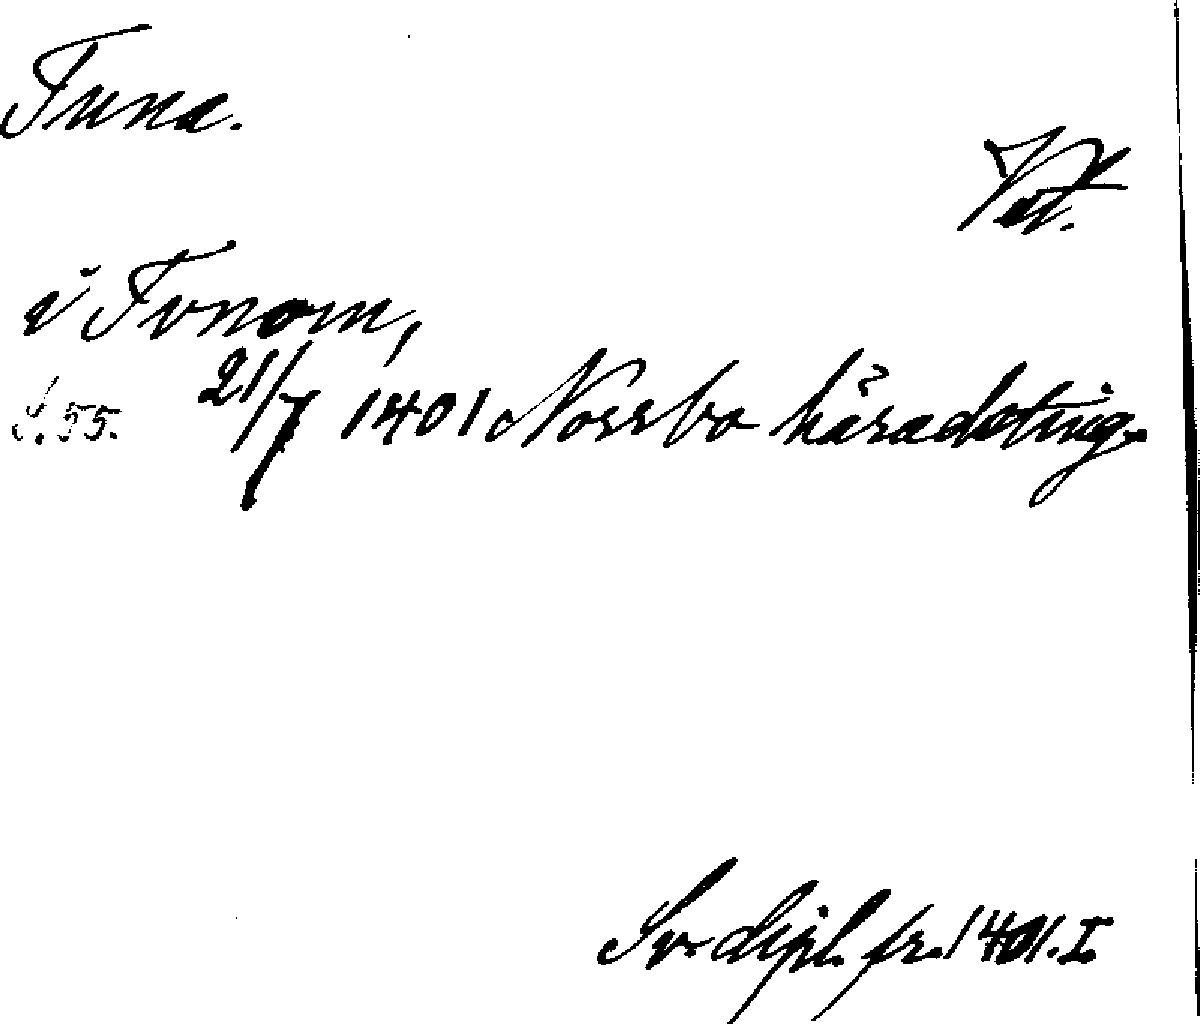 Tuna.
Vst.
i Tvnom,
S. 55. 21/7 1401 Norrbo häradsting.
Sv. dipl. fr. 1401. I.